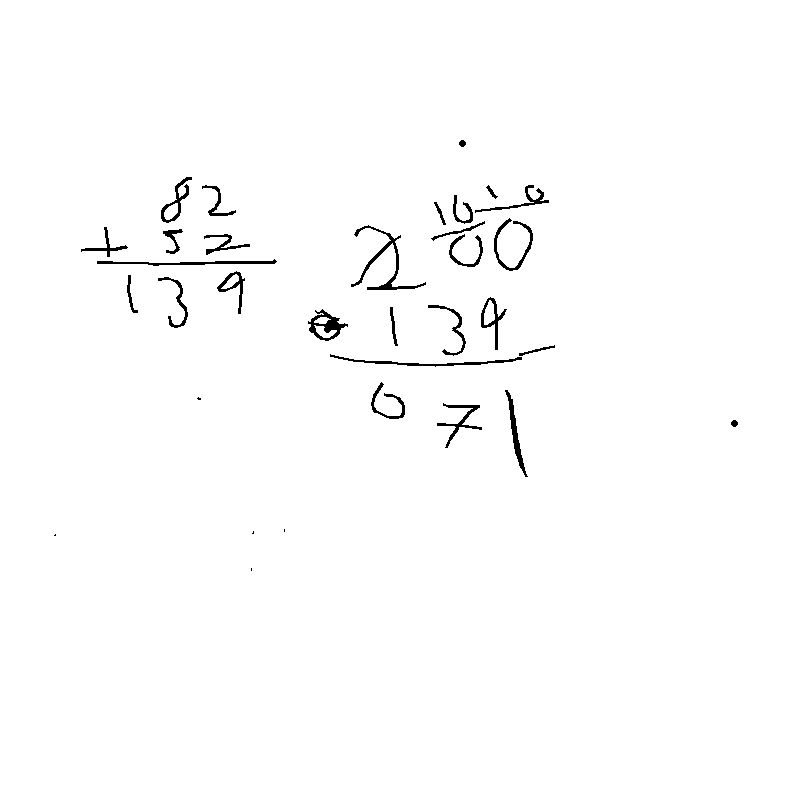 82
+ 52
139
10 10
200
139
071